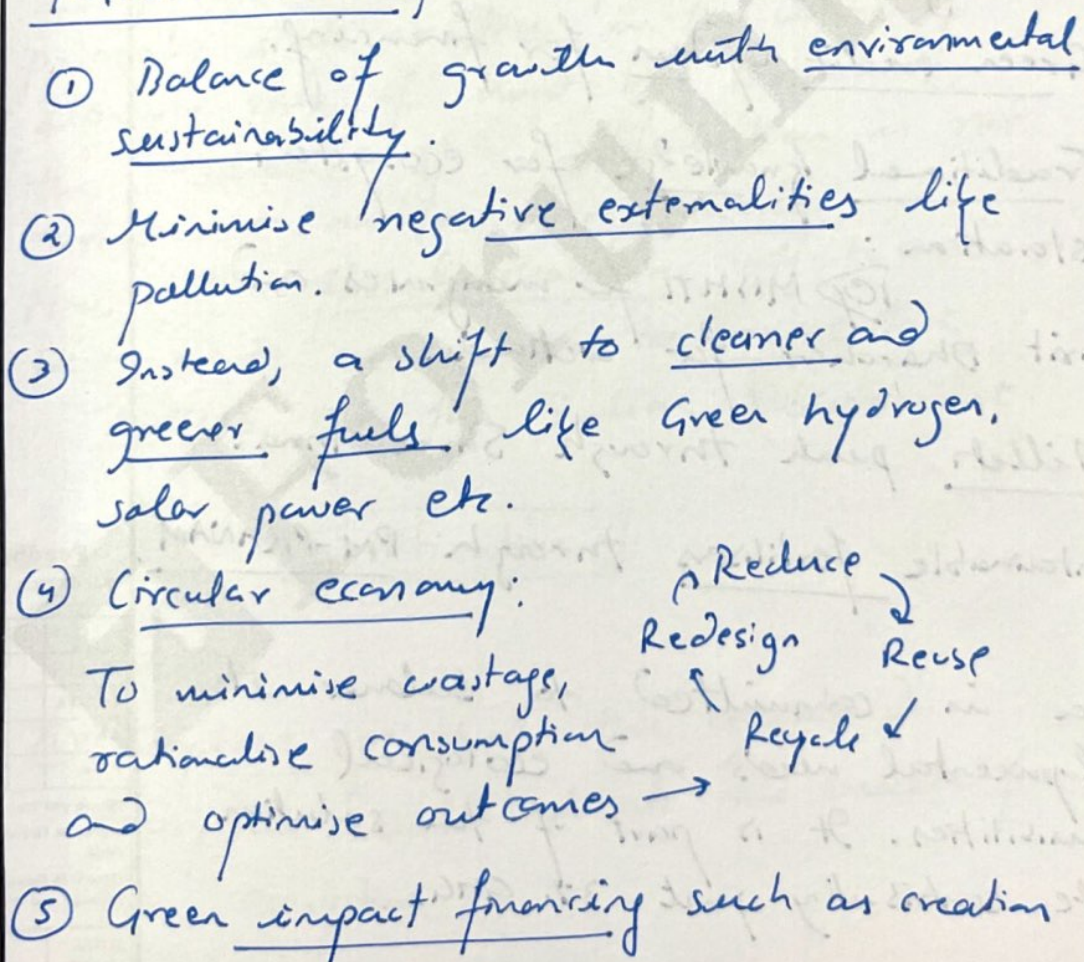 ① Balance of growth with environmental
sustainability.
② Minimise negative externalities like
pollution.
③ Instead, a shift to cleaner and
greener fuels like Green hydrogen,
solar power etc.
④ Circular economy:
Reduce
Redesign Reuse
To minimise wastage,
rationalise consumption
Recycle
and optimise outcomes →
⑤ Green impact financing such as creation